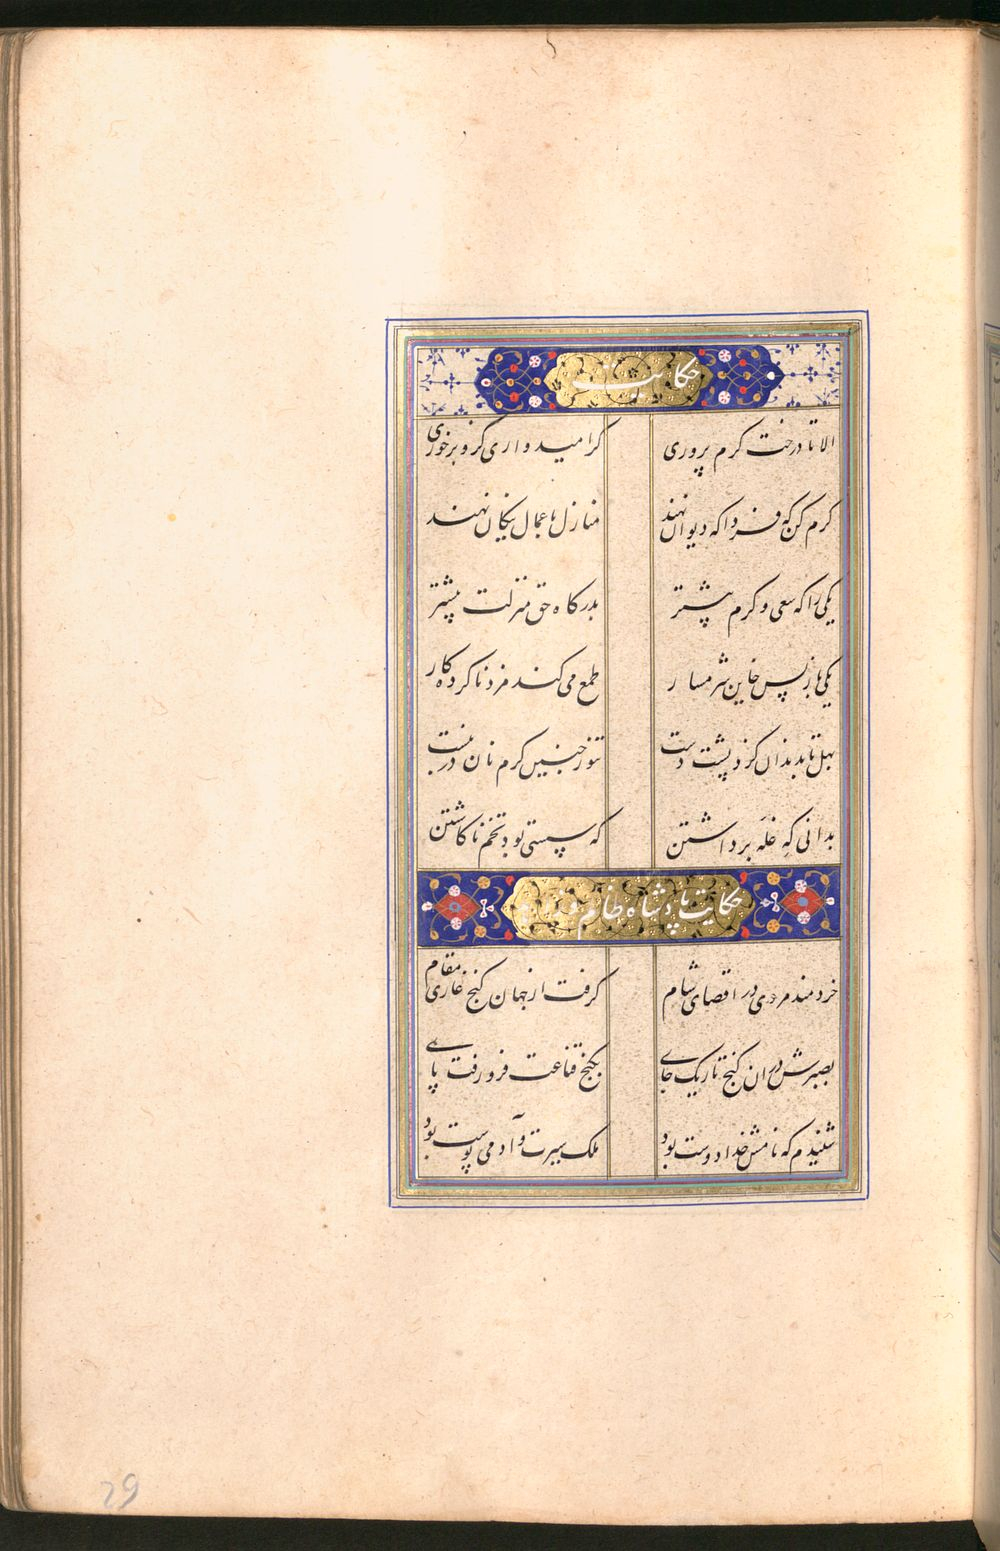 حکایت
الا تا درخت کرم پروری کر امیدواری کزو برخوری
کرم کن که فردا که دیوان نهند منازل باعمال نیکان نهند
یکی را که سعی و کرم پیشتر بدرکاه حق منزلت پیشتر
یکی باز پس خاین شرمسار طمع می کند مزد ناکرده کار
بهل تا بدندان کزد پشت دست تنوری چنین کرم نان درنبست
بدانی که غله برداشتن که سستی بود تخم ناکاشتن
حکایت پادشاه ظالم
خردمند مردی در اقصای شام کرفت از جهان کنج غاری مقام
بصبرش دران کنج تاریک جای بکنج قناعت فرو رفت پای
شنیدم که نامش خدادوست بود ملک سیرت و آدمی پوست بود
29